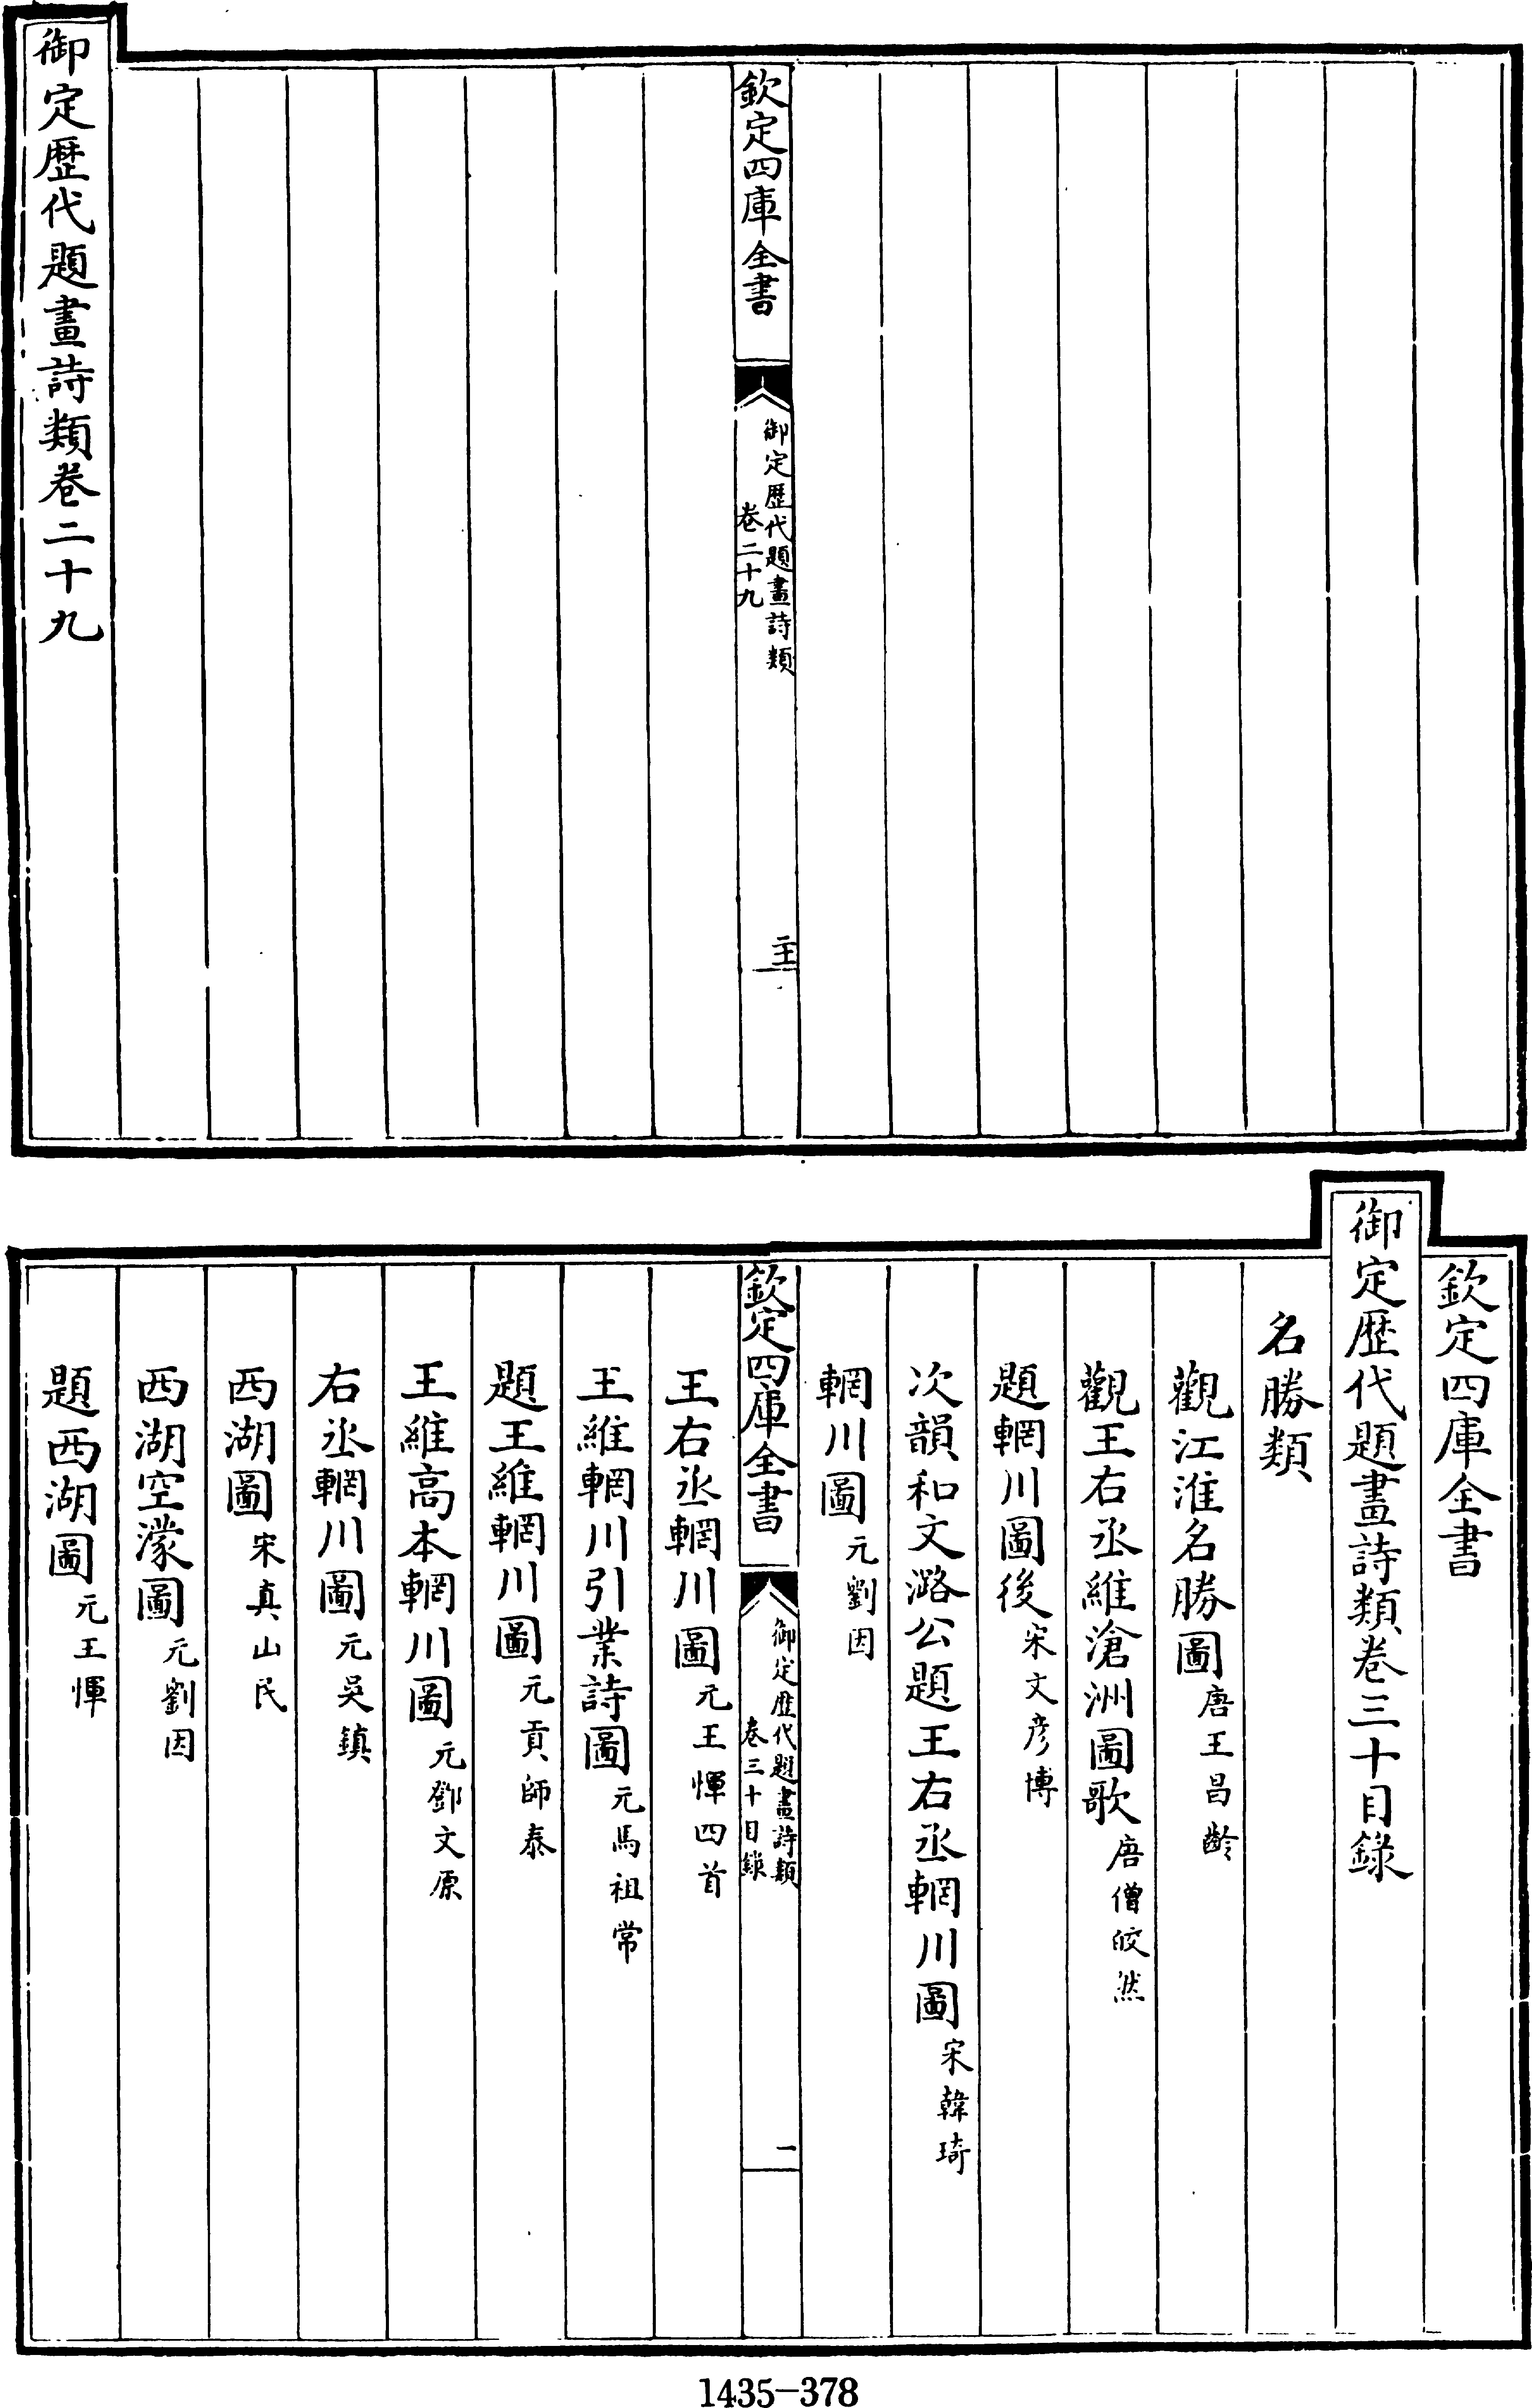 欽定四庫全書
御定歷代題畫詩類
卷二十九
御定歷代題畫詩類卷二十九
欽定四庫全書
御定歷代題畫詩類卷三十目錄
名勝類
觀江淮名勝圖唐王昌齡
觀王右丞維滄洲圖歌唐僧皎然
題輞川圖後宋文彥博
次韻和文潞公題王右丞輞川圖宋韓琦
輞川圖元劉因
欽定四庫全書
御定歷代題畫詩類
卷三十目錄
一
王右丞輞川圖元王惲四首
王維輞川引業詩圖元馬祖常
題王維輞川圖元貢師泰
王維高本輞川圖元鄧文原
右丞輞川圖元吳鎮
西湖圖宋真山民
西湖空濛圖元劉因
題西湖圖元王惲
1435-378